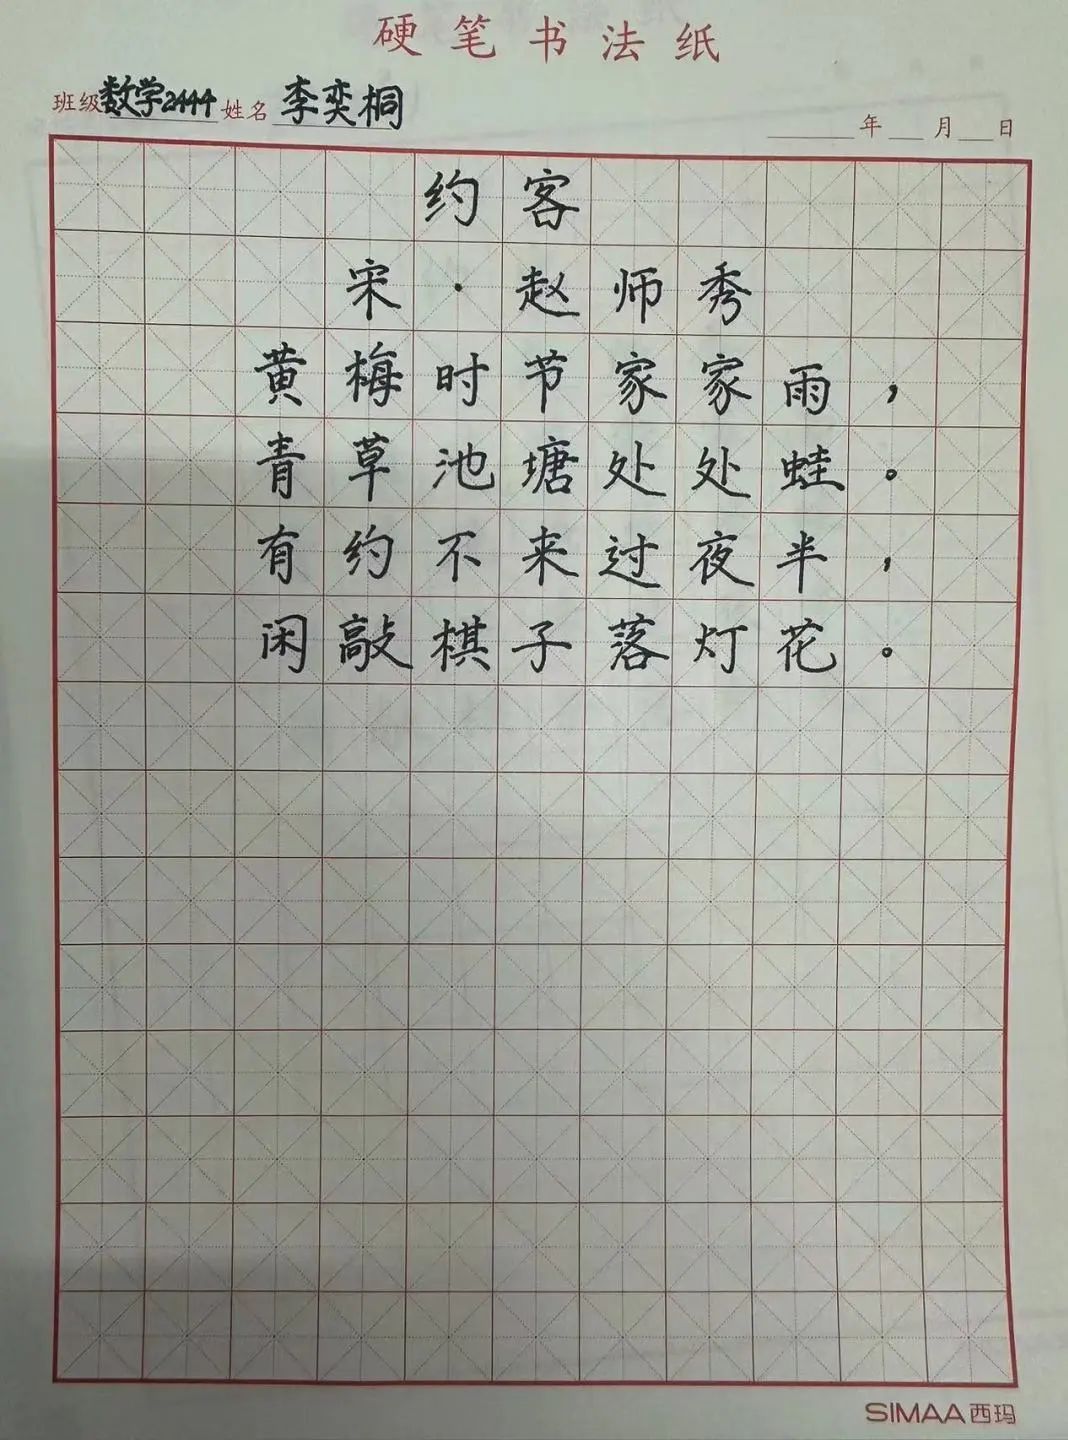 硬笔书法纸
班级 数学2444 姓名 李奕桐 年 月 日
约客
宋·赵师秀
黄梅时节家家雨，
青草池塘处处蛙。
有约不来过夜半，
闲敲棋子落灯花。
SIMAA西玛